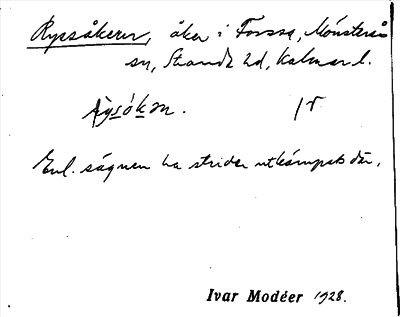 Rysåkern, åker i Forssa, Mönsterås
sn, Stranda hd, Kalmar l.
Enl. sägnen ha strider utkämpats där.
Ivar Modéer 1928.